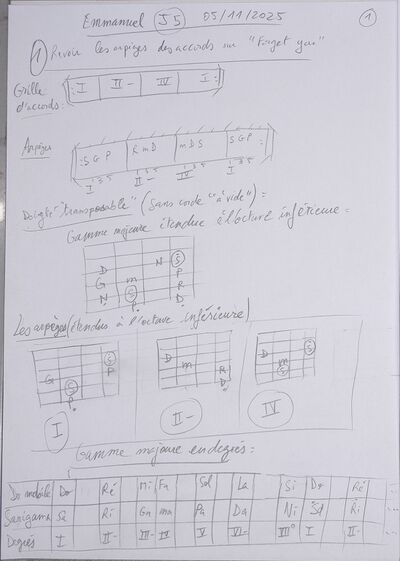 Emmanuel J5 05/11/2025 1
1 Revoir les arpèges des accords sur "Forget you"
Grille d'accords: |: I | II- | IV | I :|
Arpèges |: S G P | R m D | m D S | S G P :|
I 1 3 5 II- 1 3 5 IV 1 3 5 I 1 3 5
Doigté "transposable" (sans corde "à vide") =
Gamme majeure étendue à l'octave inférieure =
N S
D P
G m R
N S D
P
Les arpèges (étendus à l'octave inférieure)
S D S
G P m R m
S D S
P
I II- IV
Gamme majeure en degrés :
Do mobile Do Ré Mi Fa Sol La Si Do Ré
Sarigama Sa Ri Ga ma Pa Da Ni Sa Ri
Degrés I II- III- IV V VI- VII° I II-